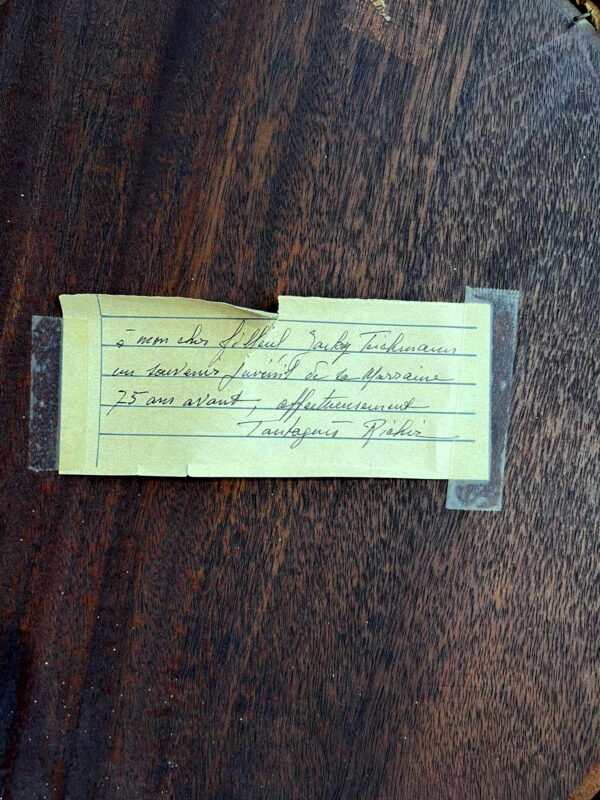 à mon cher filleul Jacky Teichmann
un souvenir juvénil de sa Marraine
75 ans avant, affectueusement